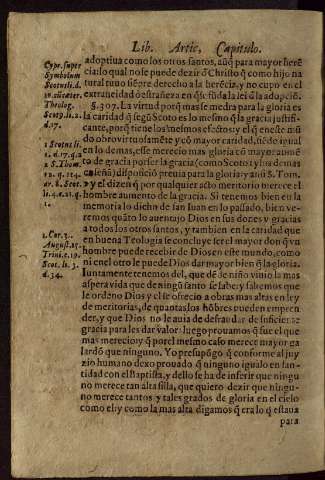 Lib. Artic, Capitulo.
Cypr. super
Symbolum
Theolog.
d.17.
1. Cor. 3.
August. 15.
Trini. c. 19.
Scot. li. 3.
d. 34.
adoptiua como los otros santos, auq̃ para mayor herẽ
cia: lo qual no se puede dezir d̃ Christo q̃ como hijo na
tural tuuo siẽpre derecho a la herẽcia, y no cupo en el
§. 307. La virtud porq̃ mas se medra para la gloria es
la caridad q̃ segũ Scoto es lo mesmo q̃ la gracia justifi-
cante, porq̃ tiene los mesmos efectos: y el q̃ en este mũ
do obro virtuosamẽte y cõ mayor caridad, siẽdo igual
en lo demas, esse merecio mas gloria cũ mayor aumẽ
to de gracia por ser la gracia (como Scoto y los demas
enseña) disposiciõ previa para la gloria: y ansi S. Tom.
y el dizen q̃ por qualquier acto meritorio merece el
hombre aumento de la gracia. Si tenemos bien en la
memoria lo dicho de san Iuan en lo passado, bien ve-
remos quãto lo auentajo Dios en sus dores y gracias
a todos los otros santos, y tambien en la caridad que
en buena Teologia se concluye ser el mayor don q̃ vn
hombre puede recebir de Dios en este mundo, como
ni en el otro le puede Dios dar mayor biẽ q̃ la gloria.
Iuntamente tenemos del, que dẽ se niño viuio la mas
aspera vida que de ningũ santo se sabe: y sabemos que
le ordeno Dios y el se ofrecio a obras mas altas en ley
de meritorias, de quantas los hõbres pueden empren
der, y que Dios no le auia de defraudar de suficiente
gracia para les dar valor: luego prouamos q̃ fue el que
mas merecio: y q̃ por el mesmo caso merece mayor ga
lardõ que ninguno. Yo presupõgo q̃ conforme al juy
zio humano dexo prouado q̃ ninguno igualo en san-
tidad con el Baptista, y dello se ha de inferir que ningu
no merece tan alta silla, que quiero dezir que ningu-
no merece tantos y tales grados de gloria en el cielo
como el: y como la mas alta digamos q̃ era lo q̃ estaua
para